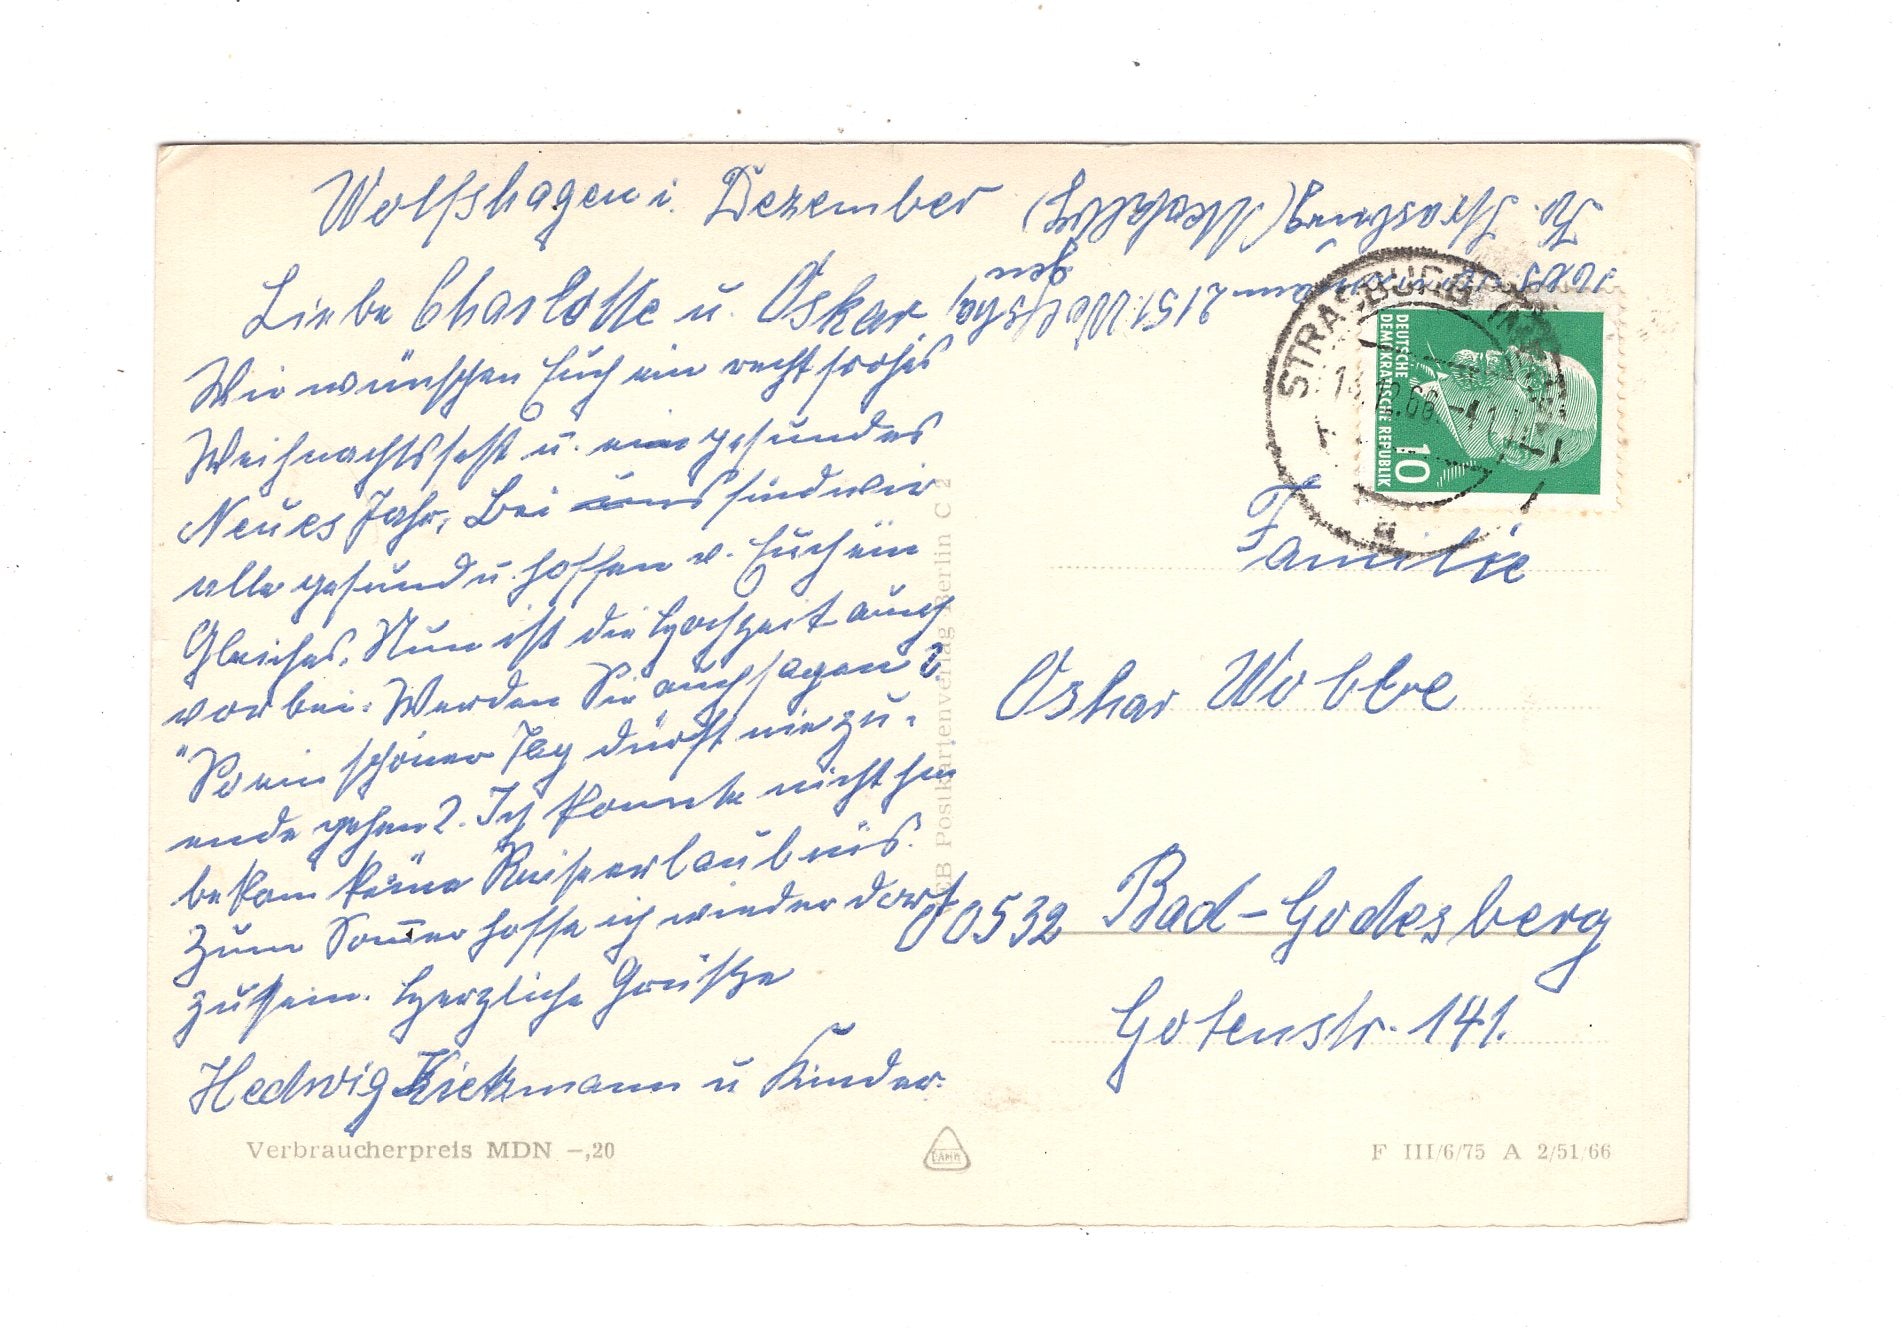 Wolfshagen i. Dezember
Liebe Charlotte u. Oskar,
Wir wünschen Euch ein recht frohes
Weihnachtsfest u. ein gesundes
Neues Jahr. Bei uns sind wir
alle gesund u. hoffen v. Euch ein
Gleiches. Nun ist die Hochzeit auch
vorbei. Werden Sie auch sagen?
"So ein schöner Tag dürft nie zu-
ende gehen?. Ich konnte nicht hin
bekam keine Reiseerlaubnis.
Zum Sommer hoffe ich wieder dort
zu sein. Herzliche Grüße
Hedwig u Kinder.
2151 Wolfshagen
Kr. Strasburg (Meckbg)
STRASBURG (MECKL)
DEUTSCHE
DEMOKRATISCHE REPUBLIK
10
a
Familie
Oskar Wobbe
00532 Bad-Godesberg
Gotenstr. 141.
VEB Postkartenverlag Berlin C 2
Verbraucherpreis MDN –,20
F III/6/75 A 2/51/66